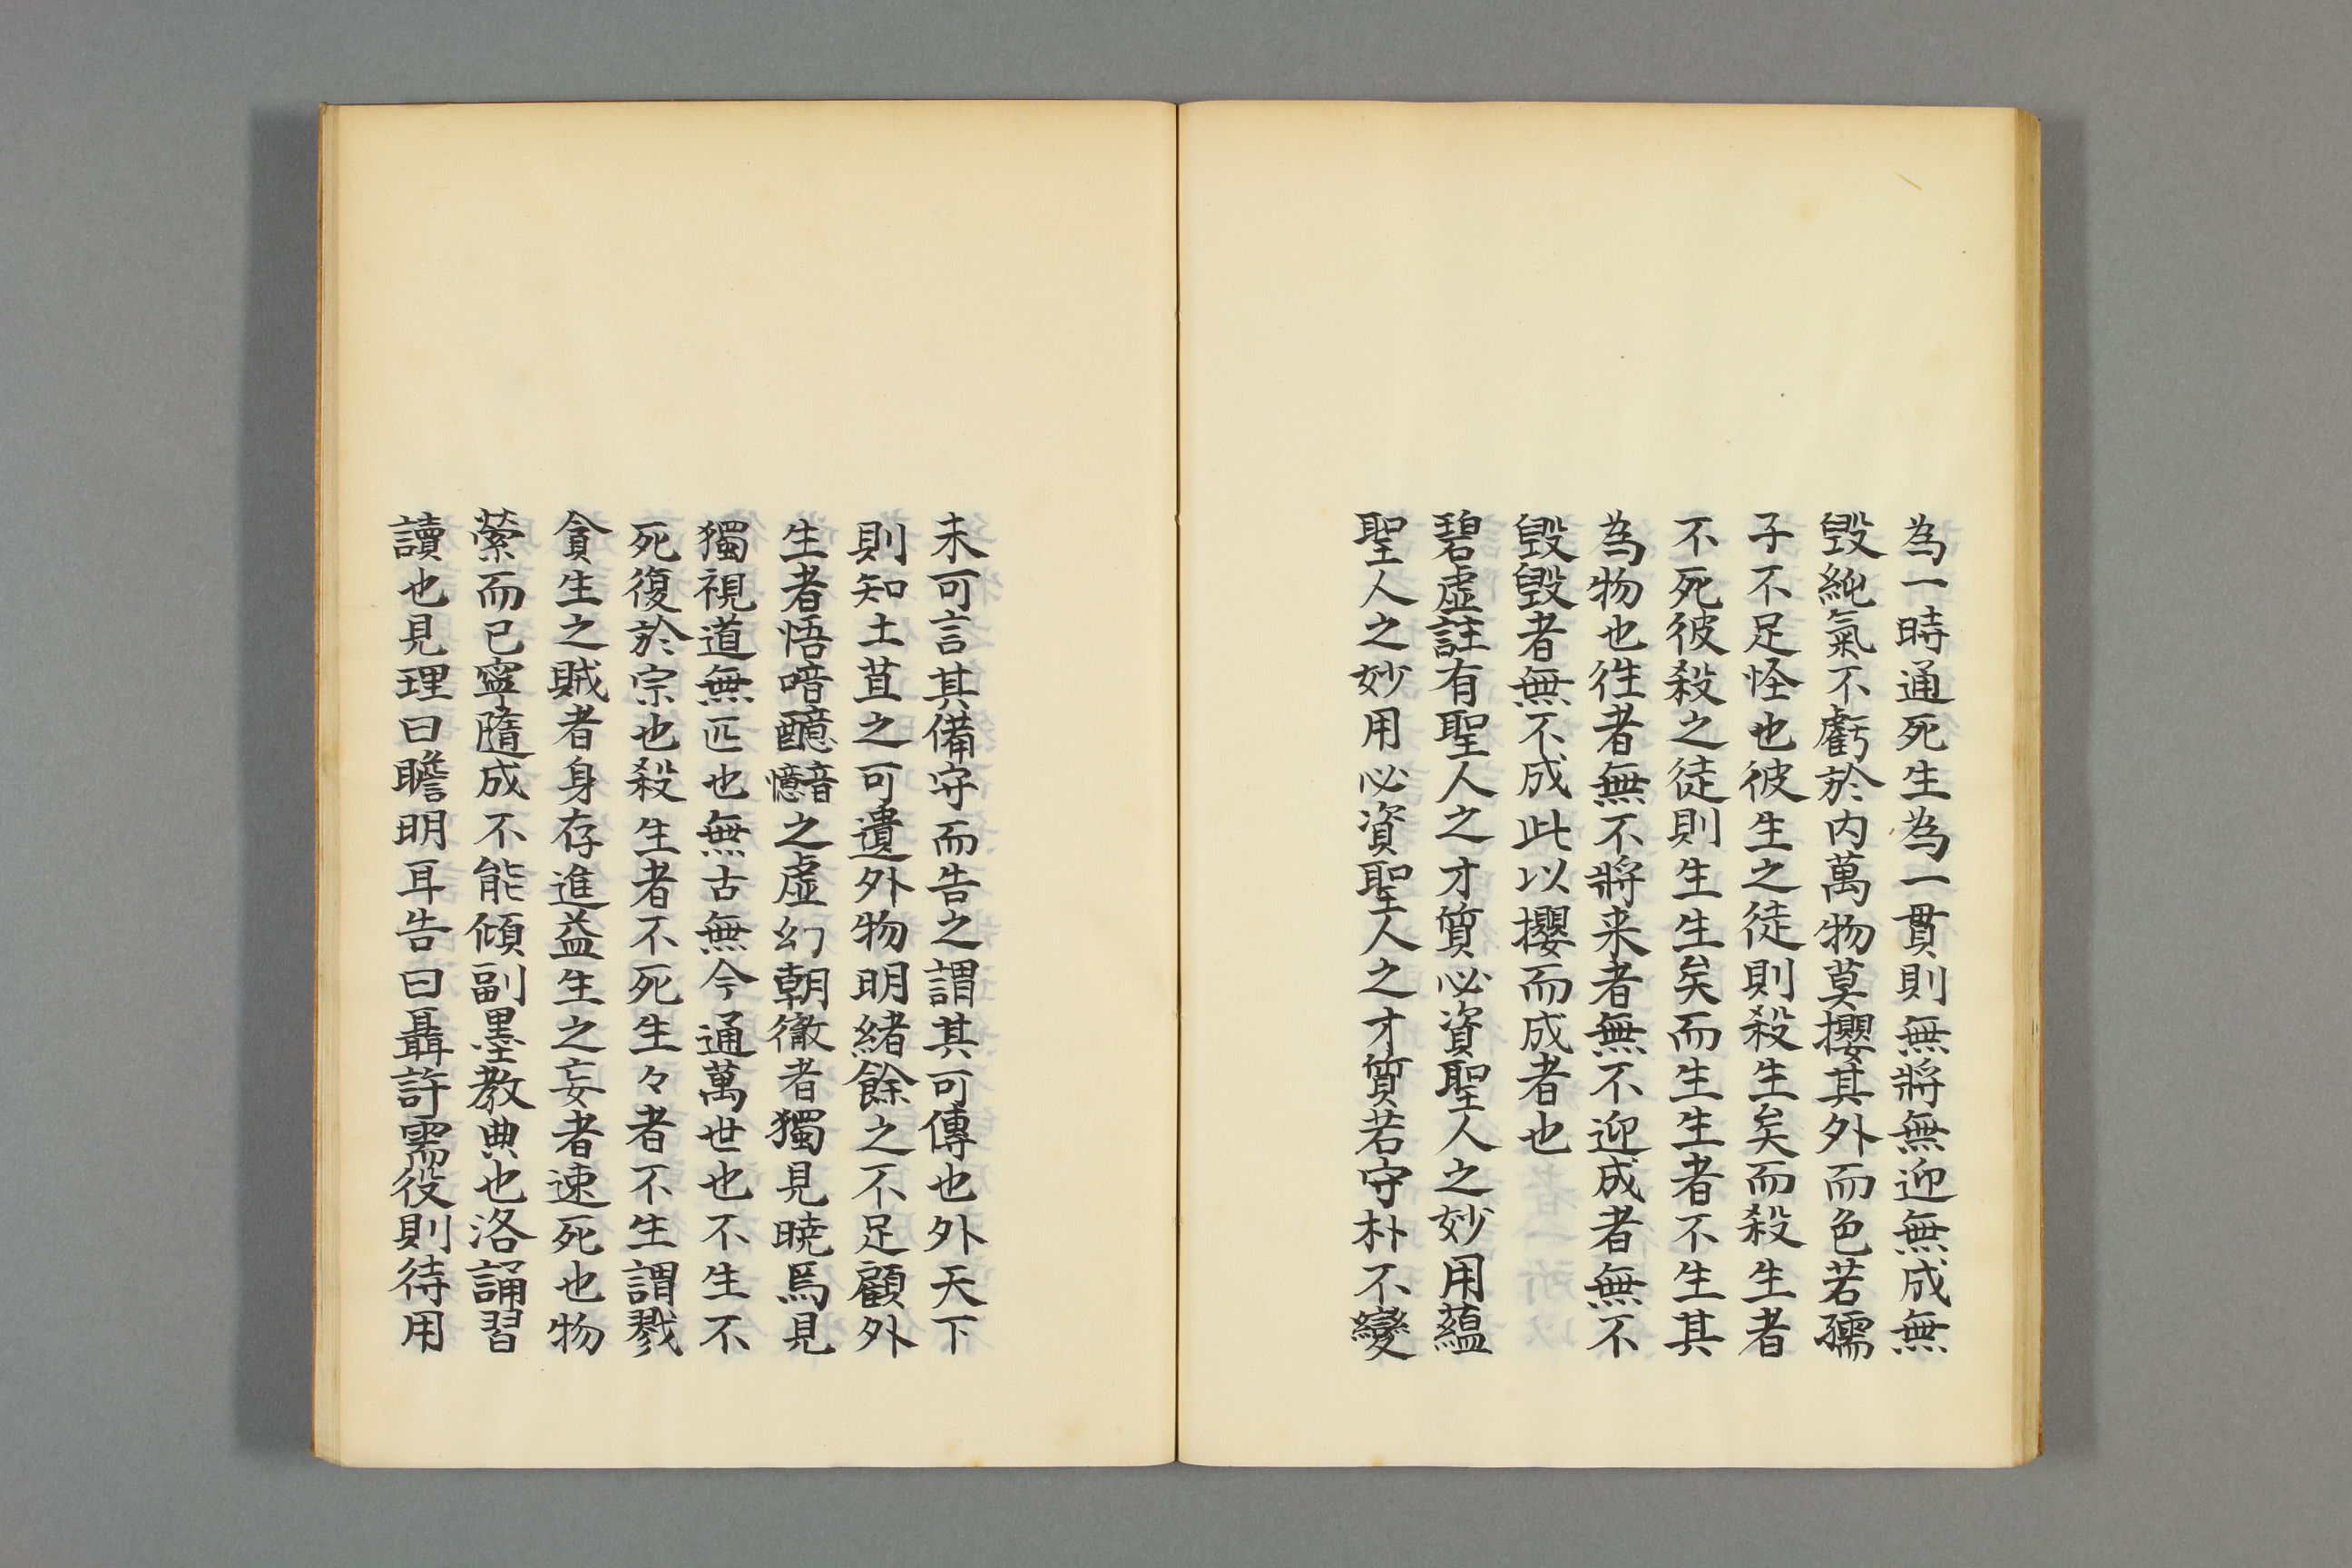 為一時通死生為一貫則無將無迎無成無
毀純氣不虧於内萬物莫攖其外而色若孺
子不足怪也彼生之徒則殺生矣而殺生者
不死彼殺之徒則生生矣而生生者不生其
為物也徃者無不將来者無不迎成者無不
毀毀者無不成此以攖而成者也
碧虚註有聖人之才質必資聖人之妙用蘊
聖人之妙用必資聖人之才質若守朴不變
未可言其備守而告之謂其可傳也外天下
則知土苴之可遺外物明緒餘之不足顧外
生者悟喑醷憶音之虚幻朝徹者獨見曉焉見
獨視道無匹也無古無今通萬世也不生不
死復於宗也殺生者不死生々者不生謂戮
貪生之賊者身存進益生之妄者速死也物
縈而已寧隨成不能傾副墨教典也洛誦習
讀也見理曰瞻明耳告曰聶許需役則待用